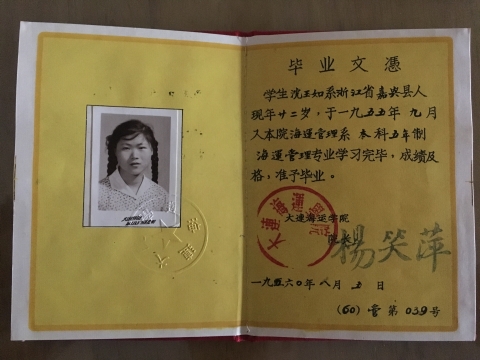 毕业文凭
学生沈玉如系浙江省嘉兴县人
现年廿二岁，于一九五五年九月
入本院海运管理系本科五年制
海运管理专业学习完毕，成绩及
格，准予毕业。
大连海运学院
院长
杨笑萍
一九六〇年八月五日
(60)管第039号